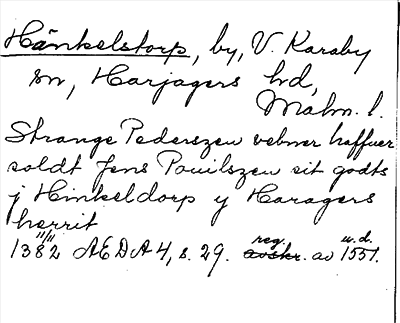 Hänkelstorp, by, V. Karaby
sn, Harjagers hd,
Malm. l.
Strange Pederszen vebner haffuer
soldt Jens Pouilszen sit godts
j Hinkeldorp y Haragers
herrit
11/11 reg. u.d.
1382 AEDA 4, s. 29. avskr. av 1551.